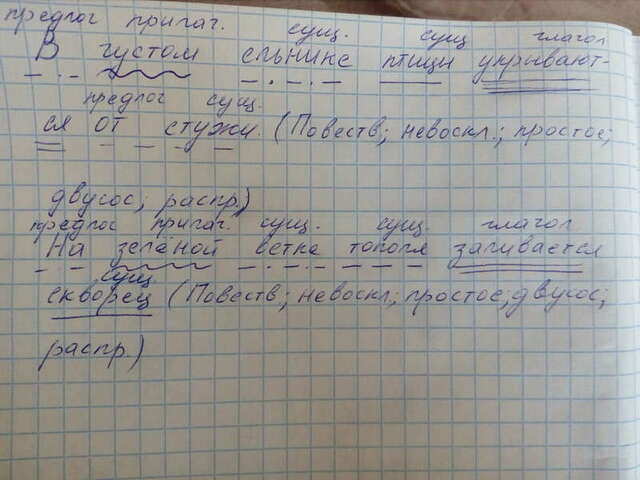 предлог прилаг. сущ. сущ глагол
В густом ельнике птицы укрывают-
предлог сущ.
ся от стужи. (Повеств; невоскл.; простое;
двусос; распр.)
предлог прилаг. сущ. сущ. глагол
На зелёной ветке тополя заливается
сущ
скворец (Повеств; невоскл; простое; двусос;
распр.)